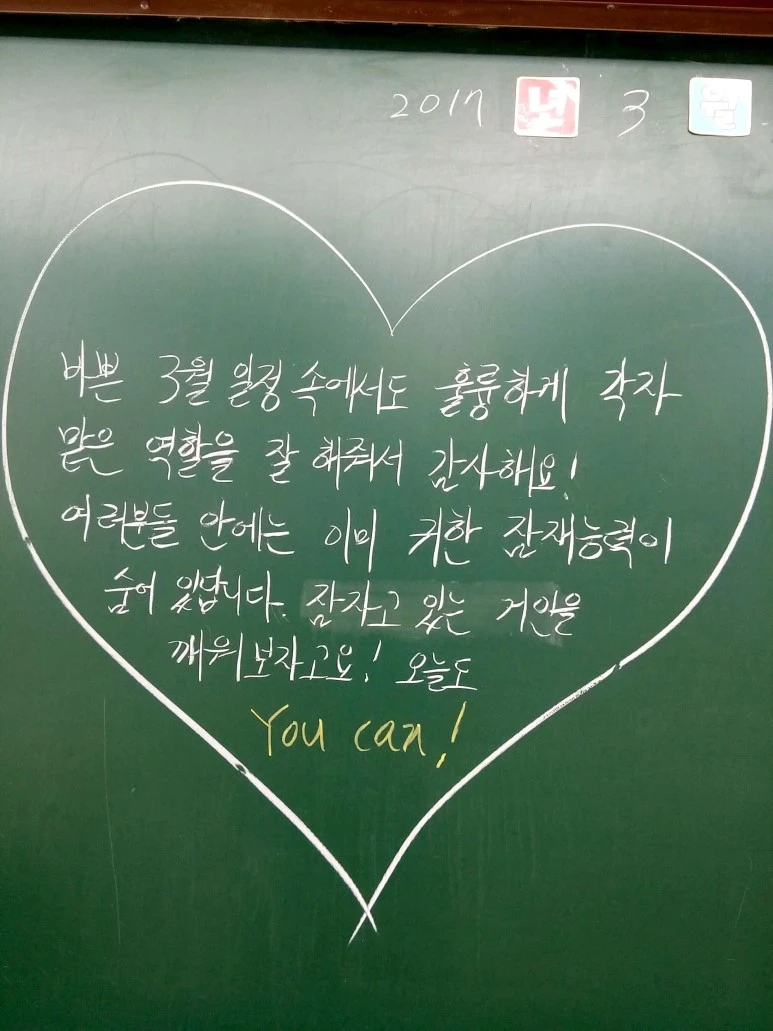 2017 년 3 월
바쁜 3월 일정 속에서도 훌륭하게 각자
맡은 역할을 잘 해줘서 감사해요!
여러분들 안에는 이미 귀한 잠재능력이
숨어 있답니다. 잠자고 있는 거인을
깨워보자고요! 오늘도
You can!